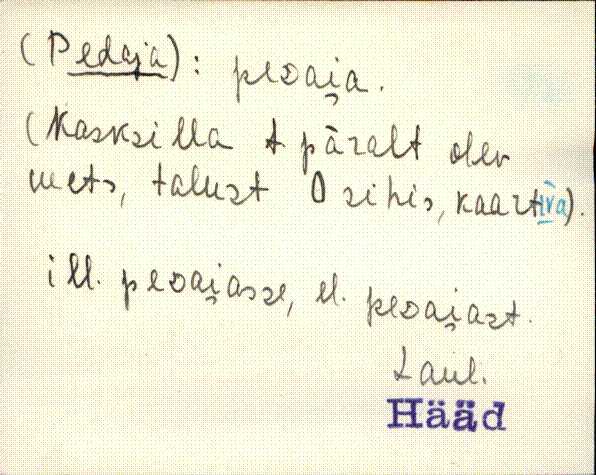 (Pedaja): peDai̯a.
(Kasksilla t päralt olev
mets, talust O sihis, kaart IVa).
ill. peDai̯asse, el. peDai̯ast.
Laul.
Hääd